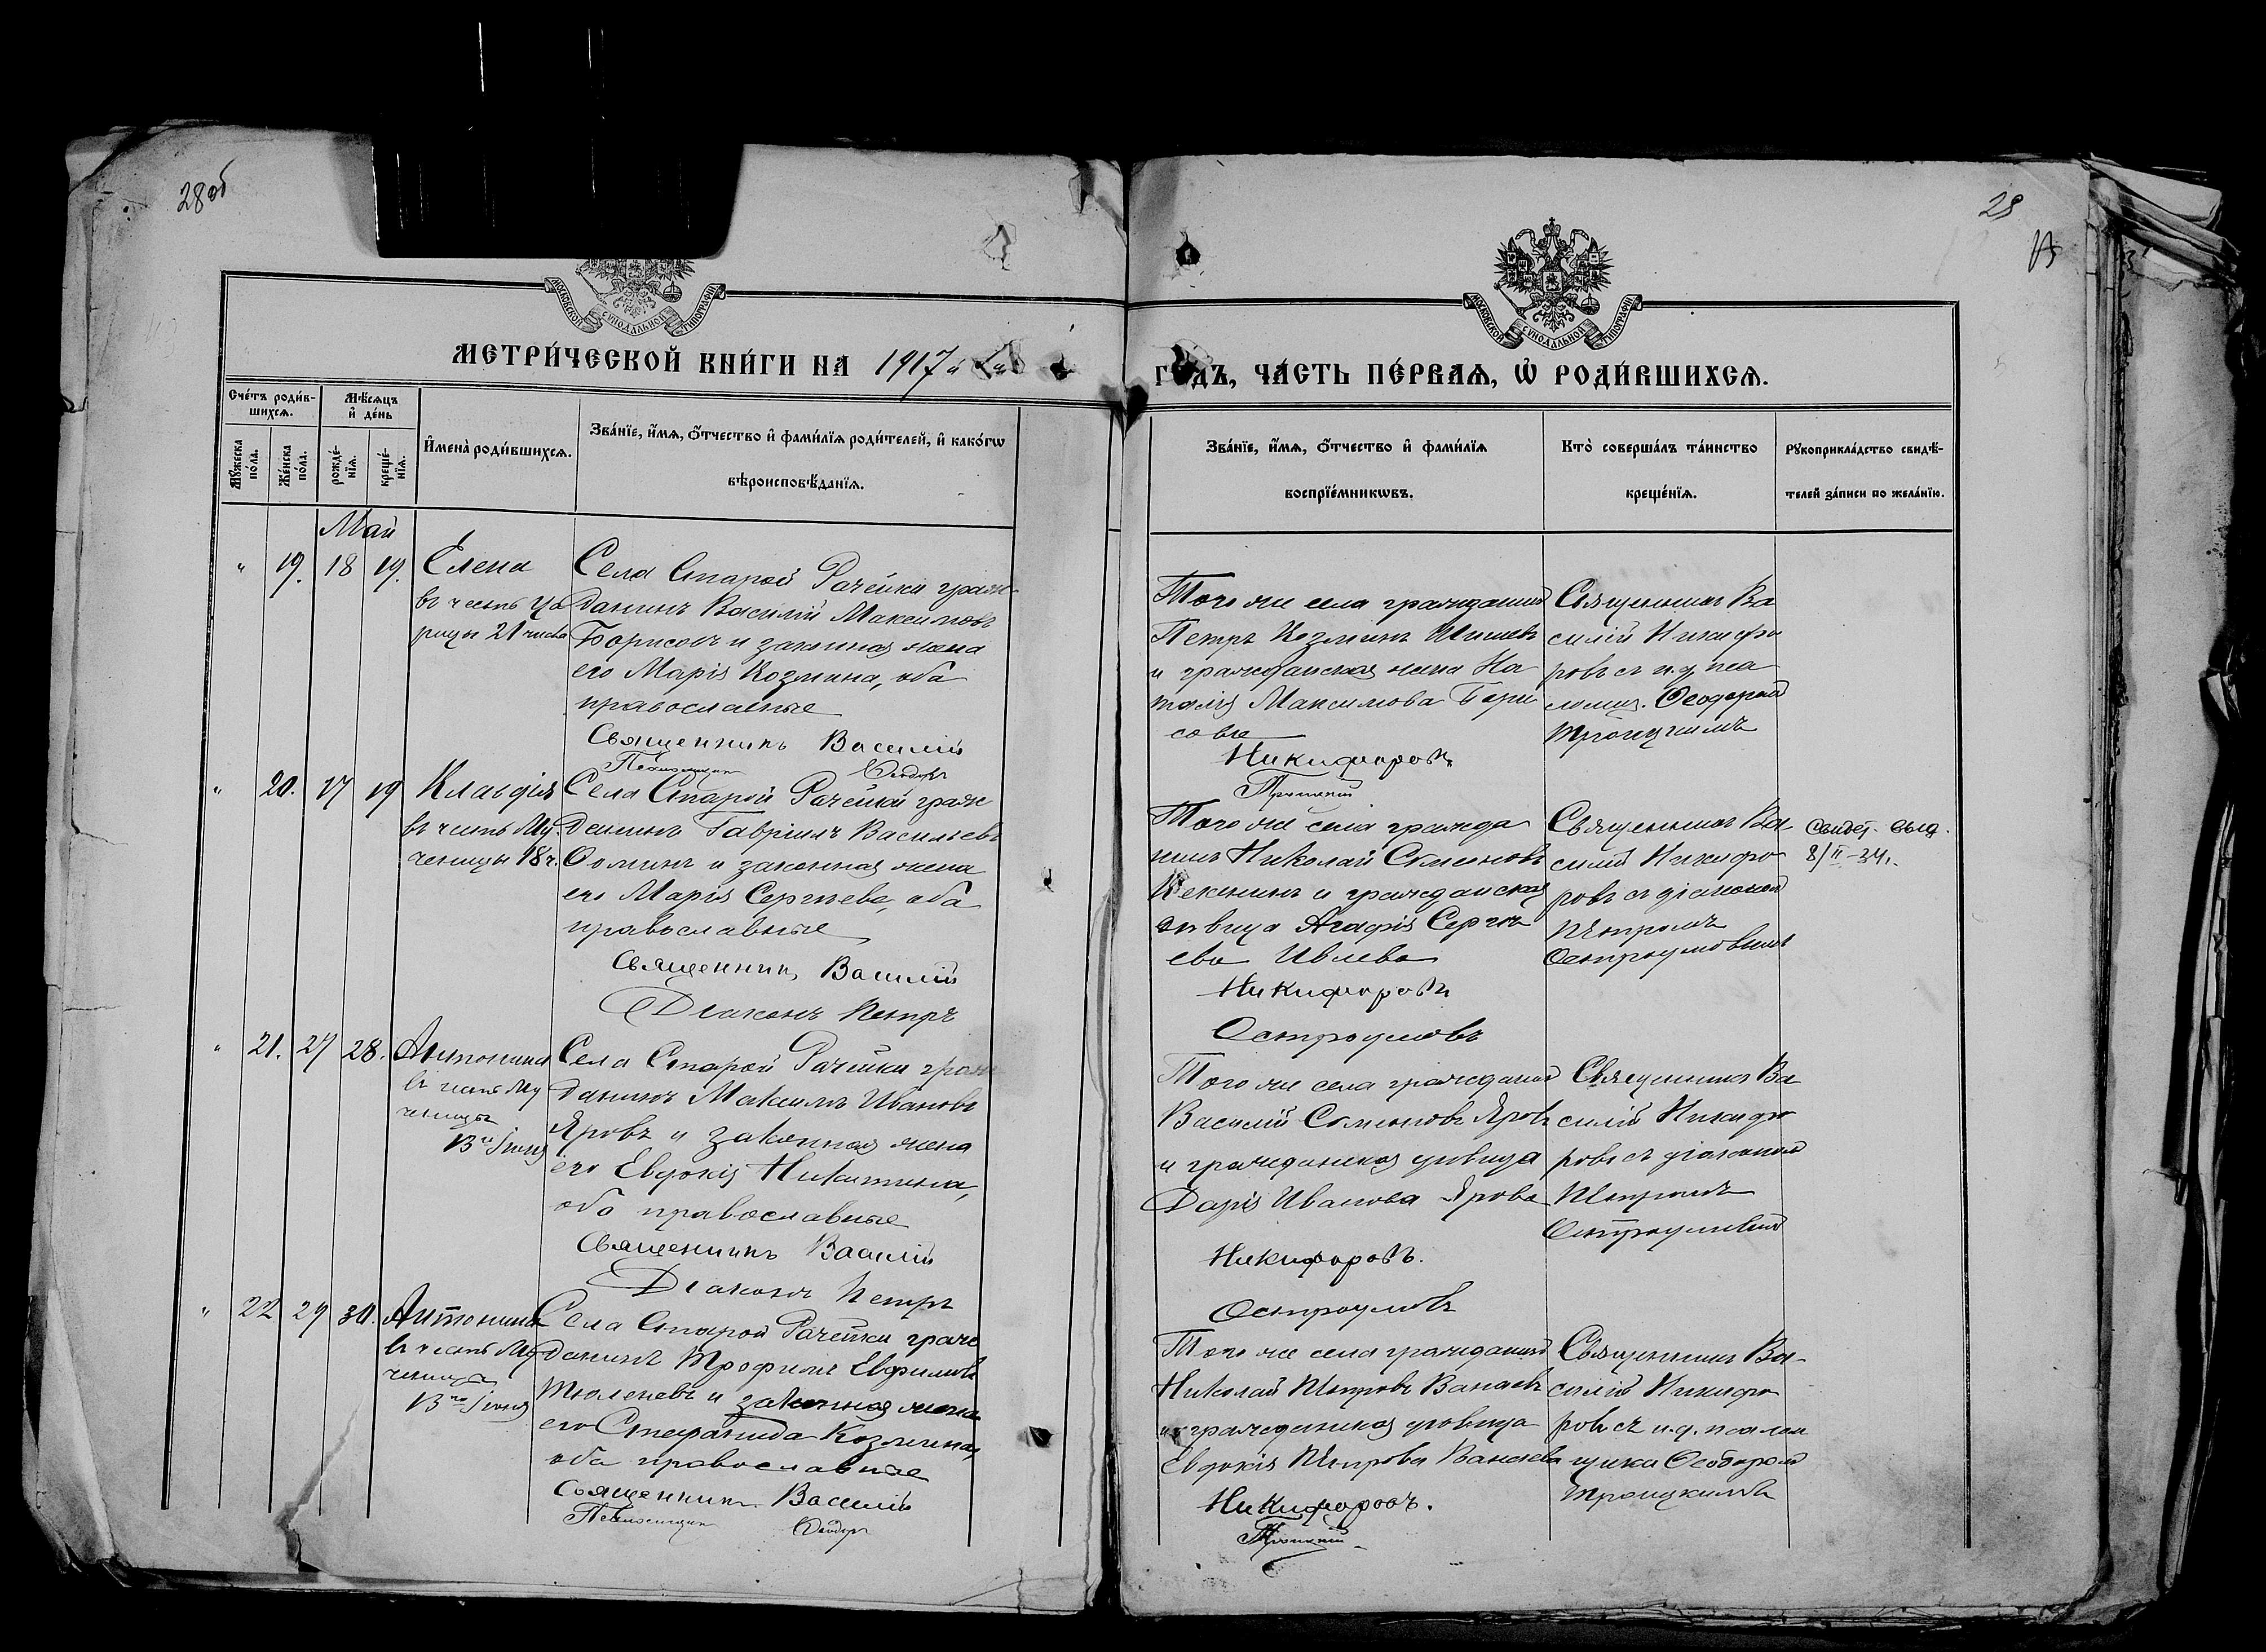 28 об
28
МОСКОВСКОЙ СУНОДАЛЬНОЙ ТИПОГРАФІИ
МОСКОВСКОЙ СУНОДАЛЬНОЙ ТИПОГРАФІИ
МЕТРИ́ЧЕСКОЙ КНИ́ГИ НА 1917й
ГОДЪ, ЧА́СТЬ ПЕ́РВАѦ, Ѡ РОДИ́ВШИХСѦ.
Сче́тъ роди́в-
шихсѧ.
Мѣ́сѧцъ
и҆ де́нь
Мꙋ́жеска по́ла.
Же́нска по́ла.
рожде́-
нїѧ.
креще́-
нїѧ.
И҆мена̀ роди́вшихсѧ.
Зва́нїе, и҆́мѧ, ѻ҆́тчество и҆ фами́лїѧ роди́телей, и҆ како́гѡ
вѣроисповѣ́данїѧ.
Зва́нїе, и҆́мѧ, ѻ҆́тчество и҆ фами́лїѧ
воспрїе́мникѡвъ.
Кто̀ соверша́лъ та́инство
креще́нїѧ.
Рꙋкоприкла́дство свидѣ́-
телей за́писи по жела́нїю.
Май
" 19. 18 19. Елена
въ честь Ца
рицы 21 числа
Села Старой Рачейки граж
данинъ Василій Максимовъ
Борисовъ и законная жена
его Марія Козмина, оба
православные
Священникъ Василій
Псаломщик Ѳеодоръ
Того же села гражданинъ
Петръ Козминъ
и гражданская жена На
талія Максимова Бори
сова
Никифоровъ
Троицкій
Священникъ Ва
силій Никифо
ровъ съ и.д. пса
ломщ. Ѳеодоромъ
Троицкимъ
" 20. 17 19 Клавдія
въ честь Му
ченицы 18 ч.
Села Старой Рачейки граж
данинъ Гавріилъ Васильевъ
Ѳоминъ и законная жена
его Марія Сергѣева, оба
православные
Священникъ Василій
Діаконъ Петръ
Того же села гражда
нинъ Николай Семеновъ
и гражданская
Агафія Сергѣ
ева Ивлева
Никифоровъ
Остроумовъ
Священникъ Ва
силій Никифо
ровъ съ діакономъ
Петромъ
Остроумовымъ
Свидет. выд.
8/II-34 г.
" 21. 27 28. Антонина
въ честь Му
ченицы
13го Іюня
Села Старой Рачейки граж
данинъ Максимъ Ивановъ
Яровъ и законная жена
его Евдокія Никитина,
оба православные
Священникъ Василій
Діаконъ Петръ
Того же села гражданинъ
Василій Семеновъ Яровъ
и гражданская дѣвица
Дарія Иванова Ярова
Никифоровъ.
Остроумовъ
Священникъ Ва
силій Никифо
ровъ съ діакономъ
Петромъ
Остроумовымъ
" 22 29 30. Антонина
въ честь Му
ченицы
13го Іюня
Села Старой Рачейки граж
данинъ Трофимъ Евфимовъ
Тюленевъ и законная жена
его Стефанида Козмина,
оба православные
Священникъ Василій
Псаломщик Ѳеодоръ
Того же села гражданинъ
Николай Петровъ Ванаевъ
и гражданская дѣвица
Евдокія Петрова Ванаева
Никифоровъ.
Троицкій
Священникъ Ва-
силій Никифо
ровъ съ и.д. псалом
щика Ѳеодоромъ
Троицкимъ